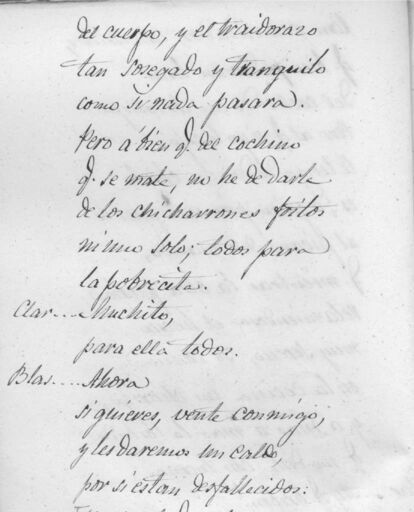 del cuerpo, y el traidorazo
tan sosegado y tranquilo
como si nada pasara.
Pero á bien q. del cochino
q. se mate, no he de darle
de los chicharrones fritos
ni uno solo; todos para
la pobrecita.
Clar.... Muchito,
para ella todos.
Blas.... Ahora
si quieres, vente conmigo,
y les daremos un caldo,
por si estan desfallecidos: